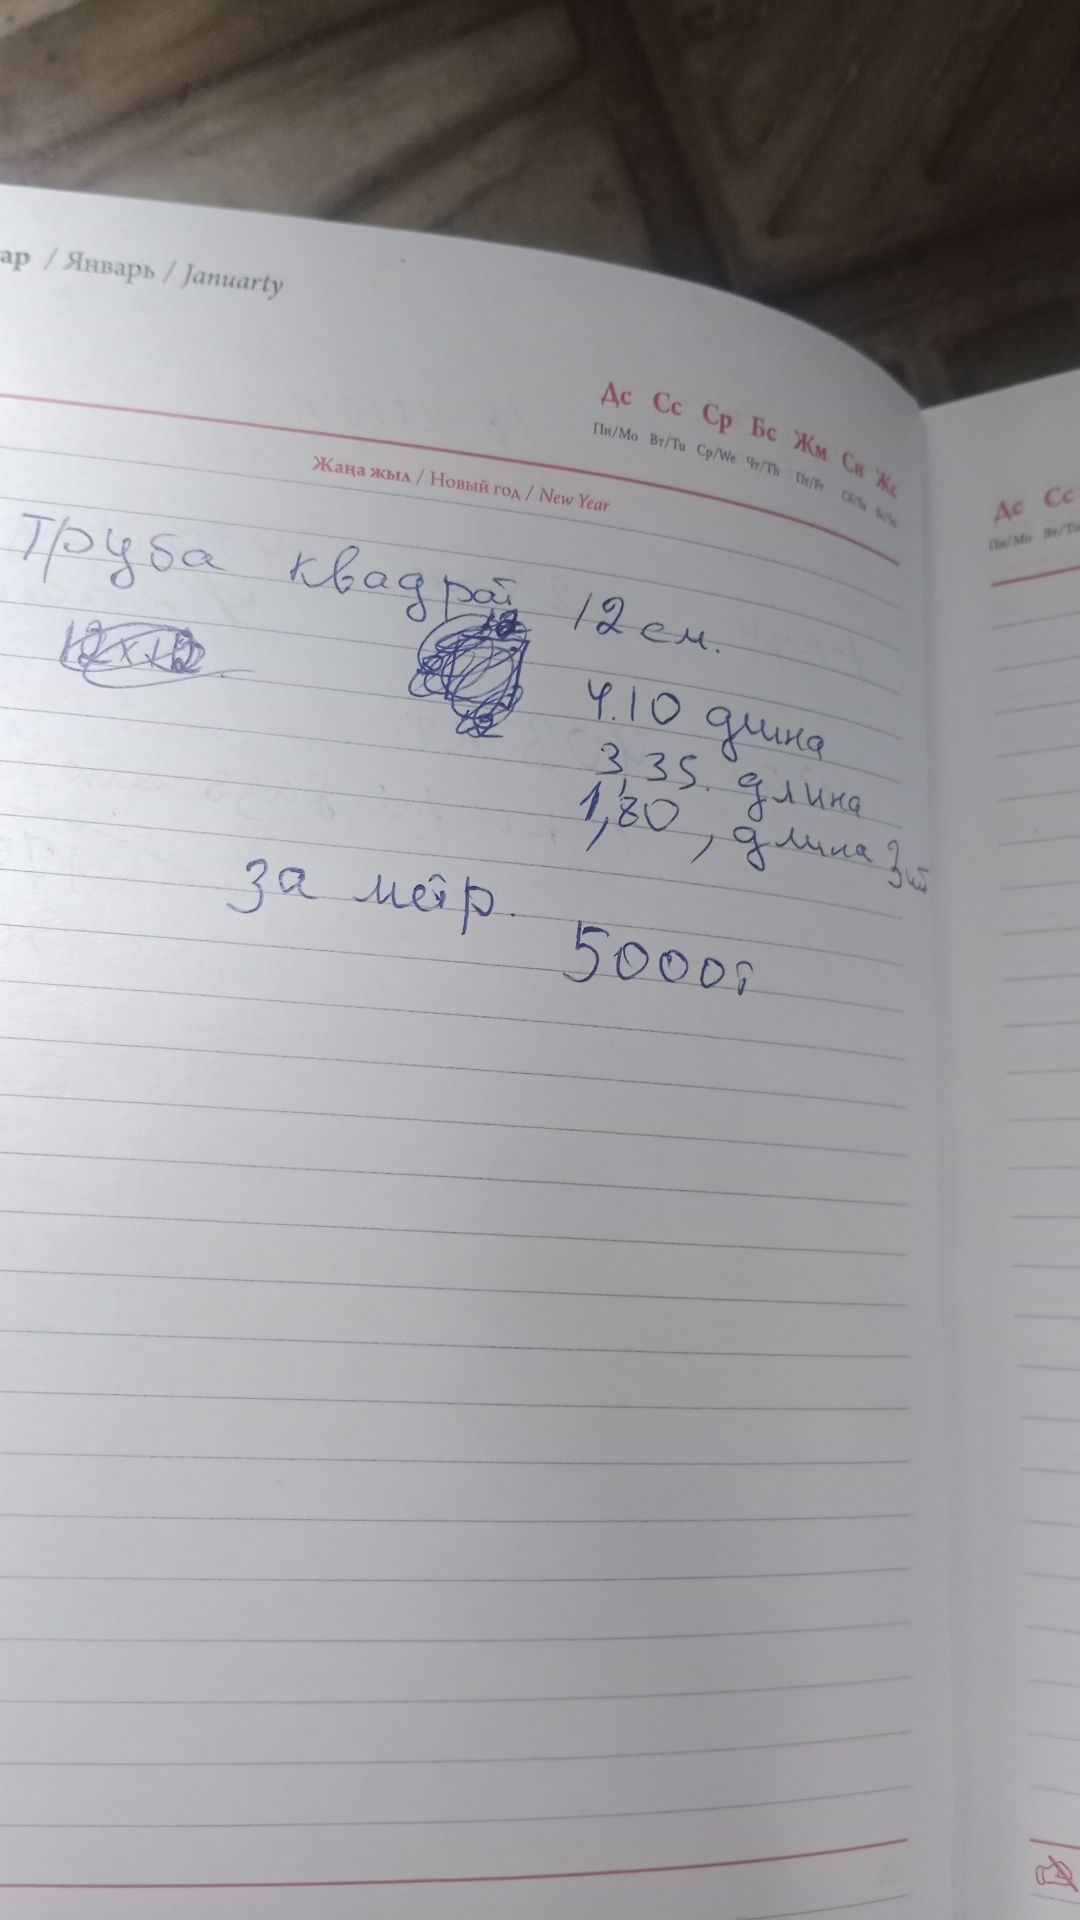 ар / Январь / Januarty
Дс Сс Ср Бс Жм Сн Жс
Пн/Mo Вт/Tu Ср/We Чт/Th Пт/Fr Сб/Sa Вс/Su
Жаңа жыл / Новый год / New Year
Труба квадрат 12 см.
12х12
4.10 длина
3,35. длина
1,80, длина 3шт
за метр.
5000т
Дс Сс
Пн/Mo Вт/Tu